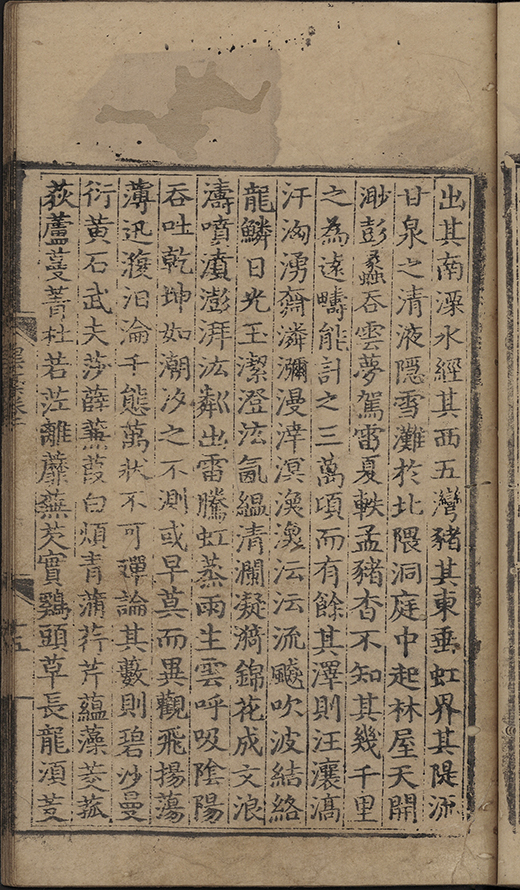 出其南溧水經其西五灣豬其東垂虹界其隄派
甘泉之清液隱雪灘於北隈洞庭中起林屋天開
渺彭蠡吞雲夢駕雷夏軼孟豬杳不知其幾千里
之為遠疇能計之三萬頃而有餘其澤則汪瀼滈
汗洶湧奫潾瀰漫涬溟渙渙沄沄流飈吹波結絡
龍鱗日光玉潔澄泫氤縕清瀾凝漪錦花成文浪
濤噴濆澎湃汯粼出雷騰虹蒸雨生雲呼吸陰陽
吞吐乾坤如潮汐之不測或早莫而異觀飛揚蕩
薄迅澓汨淪千態萬狀不可殫論其藪則碧沙曼
衍黃石武夫莎薛蕪葭白薠青蒲荇芹蘊藻茭菰
荻蘆蔓菁杜若茳離蘼蕪芡實鷄頭草長龍須芰